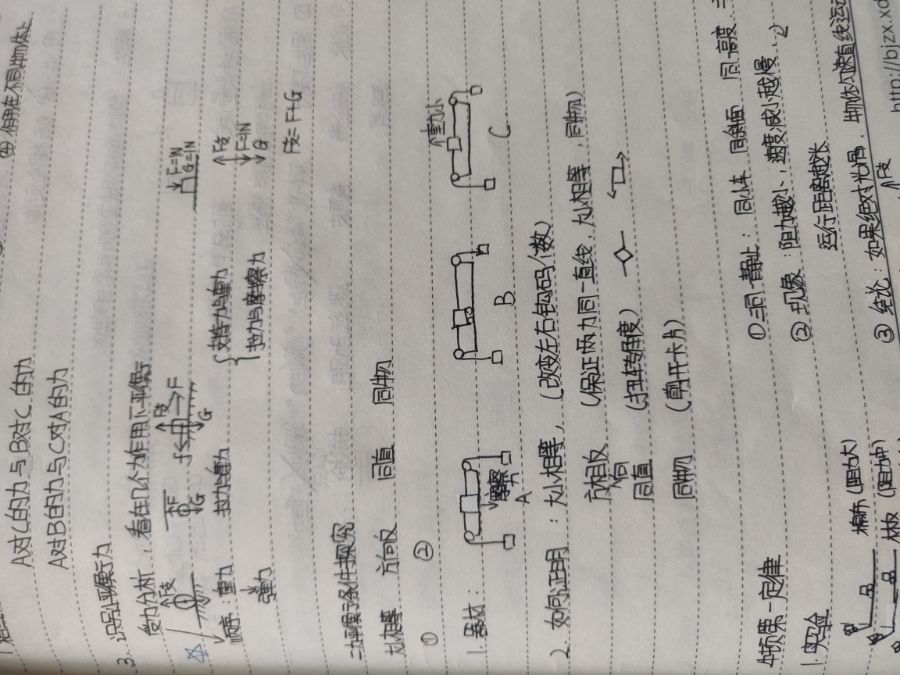 ④ 作用在不同物体上
A对C的力与B对C的力
A对B的力与C对A的力
3. 识别平衡力
受力分析，看在几个力作用下平衡
F支 F G f F支 F G F=1N G=1N
顺序：重力 弹力 拉力与重力 { 支持力与重力 拉力与摩擦力 F支 F=1N G
F支=F+G
二力平衡条件探究
大小相等 方向反 同直 同物
① ②
1. 器材： 摩擦力 A B 重力小 C
2. 如何证明：大小相等，(改变左右钩码个数)
方向相反 (保证两力同一直线，大小相等，同物)
同直 (扭转角度)
同物 (剪开卡片)
牛顿第一定律
1. 实验 ① 三同一静止：同小车 同斜面 同高度
② 现象：阻力越小，速度减小越慢，
运行距离越长
棉布(阻力大) ③ 结论：如果绝对光滑，物体匀速直线运动
木板(阻力中) F支
http://bjzx.xd